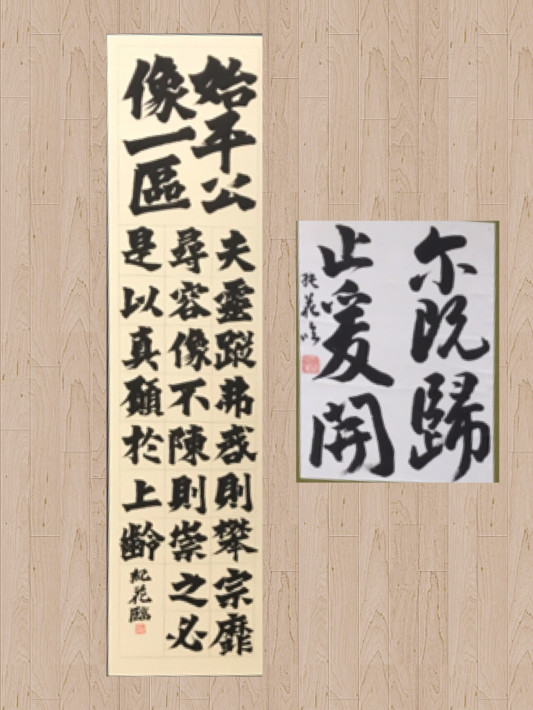 始平公
像一區
夫靈蹤弗惑則攀宗靡
尋容像不陳則崇之必
是以真顏於上齡
杞花臨
尓既歸
止爰開
花臨